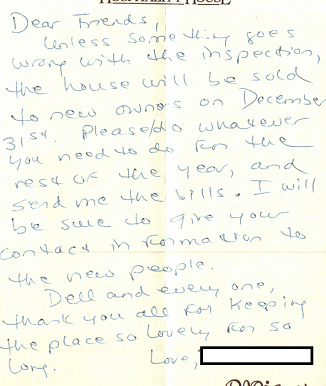 HOSPITALITY HOUSE
Dear Friends,
Unless something goes
wrong with the inspection,
the house will be sold
to new owners on December
31st. Please do whatever
you need to do for the
rest of the year, and
send me the bills. I will
be sure to give your
contact information to
the new people.
Dell and everyone,
thank you all for keeping
the place so lovely for so
long. Love,